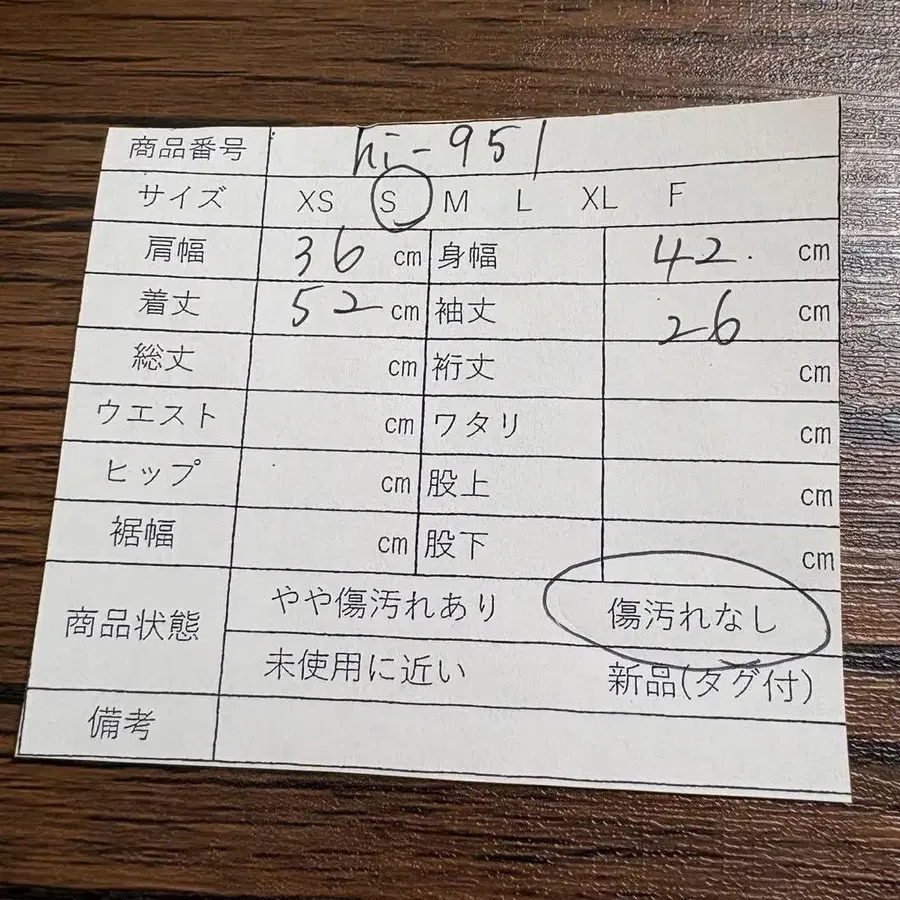 商品番号 hi-951
サイズ XS S M L XL F
肩幅 36 cm 身幅 42. cm
着丈 52 cm 袖丈 26 cm
総丈 cm 裄丈 cm
ウエスト cm ワタリ cm
ヒップ cm 股上 cm
裾幅 cm 股下 cm
商品状態 やや傷汚れあり 傷汚れなし
未使用に近い 新品(タグ付)
備考